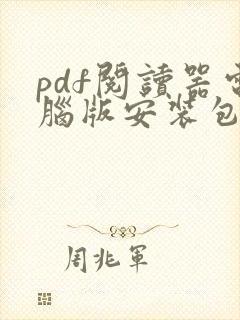 pdf閱讀器電
腦版安裝包
周兆軍